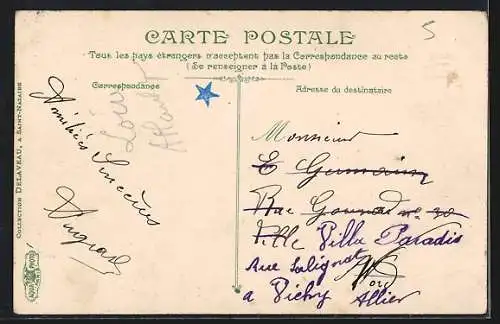 CARTE POSTALE
Tous les pays étrangers n'acceptent pas la Correspondance au recto
(Se renseigner à la Poste)
Correspondance
Adresse du destinataire
5
Amitiés Sincères
Monsieur
E Germain
Rue Gounod
Ville Villa Paradis
Rue Salignat
a Vichy
Allier
COLLECTION DELAVEAU, A SAINT-NAZAIRE
AQUA PHOTO